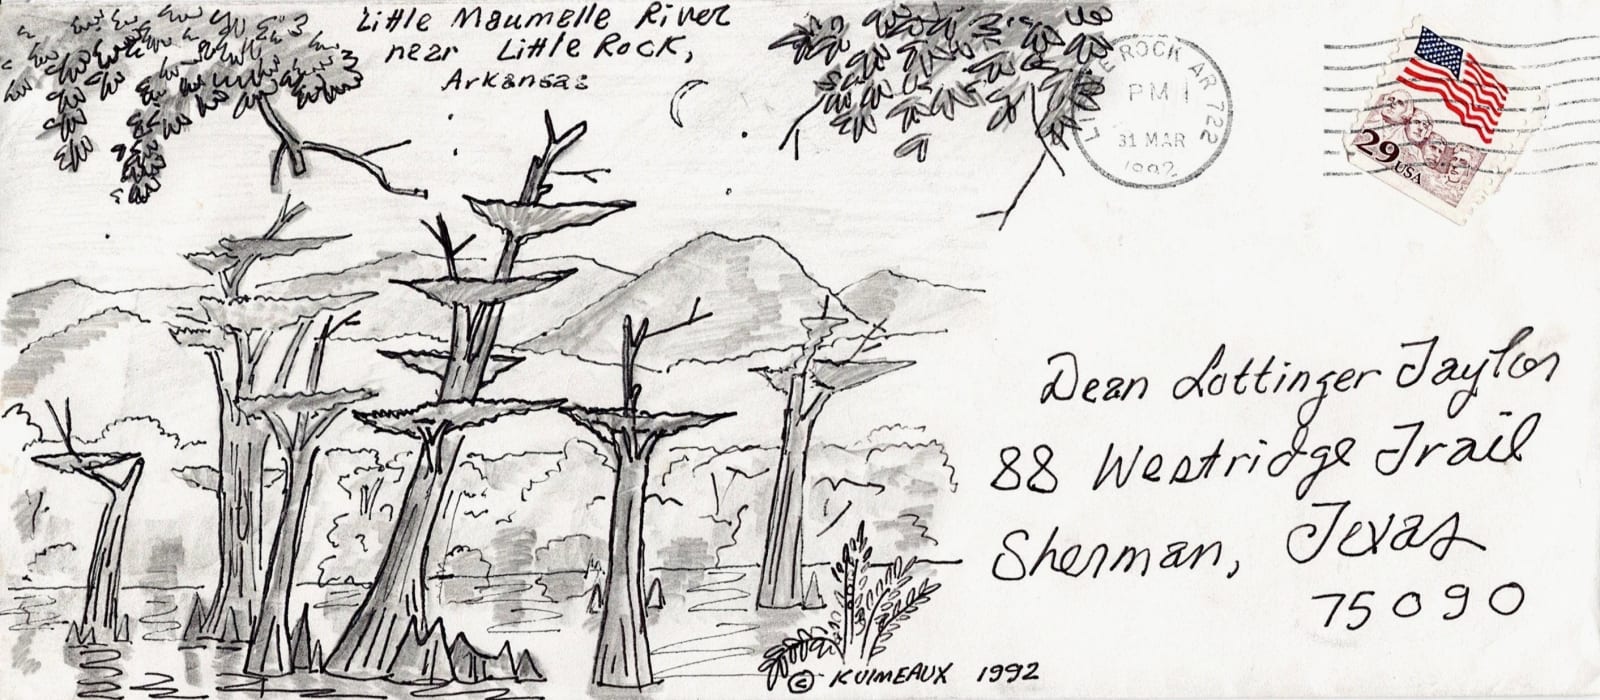 Little Maumelle River
near Little Rock,
Arkansas
LITTLE ROCK AR 722
PM
31 MAR
1992
29 USA
Dean Lottinger Taylor
88 Westridge Trail
Sherman, Texas
75090
© KUIMEAUX 1992